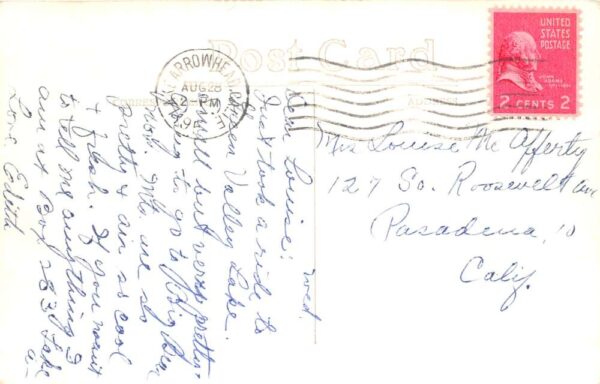 Post Card
ARROWHEAD
AUG 28
2-PM
UNITED
STATES
POSTAGE
JOHN
ADAMS
2 CENTS 2
Wed.
Dear Louise:
Just took a ride to
Green Valley Lake.
Small but very pretty.
Going to go to Big Bear
now. Mts. are so
pretty & air so cool
& fresh. If you want
to tell me anything I
am at Box 283 Lake
A-
Love, Edith
Miss Louise Mc Afferty
127 So. Roosevelt Ave
Pasadena, 10
Calif.